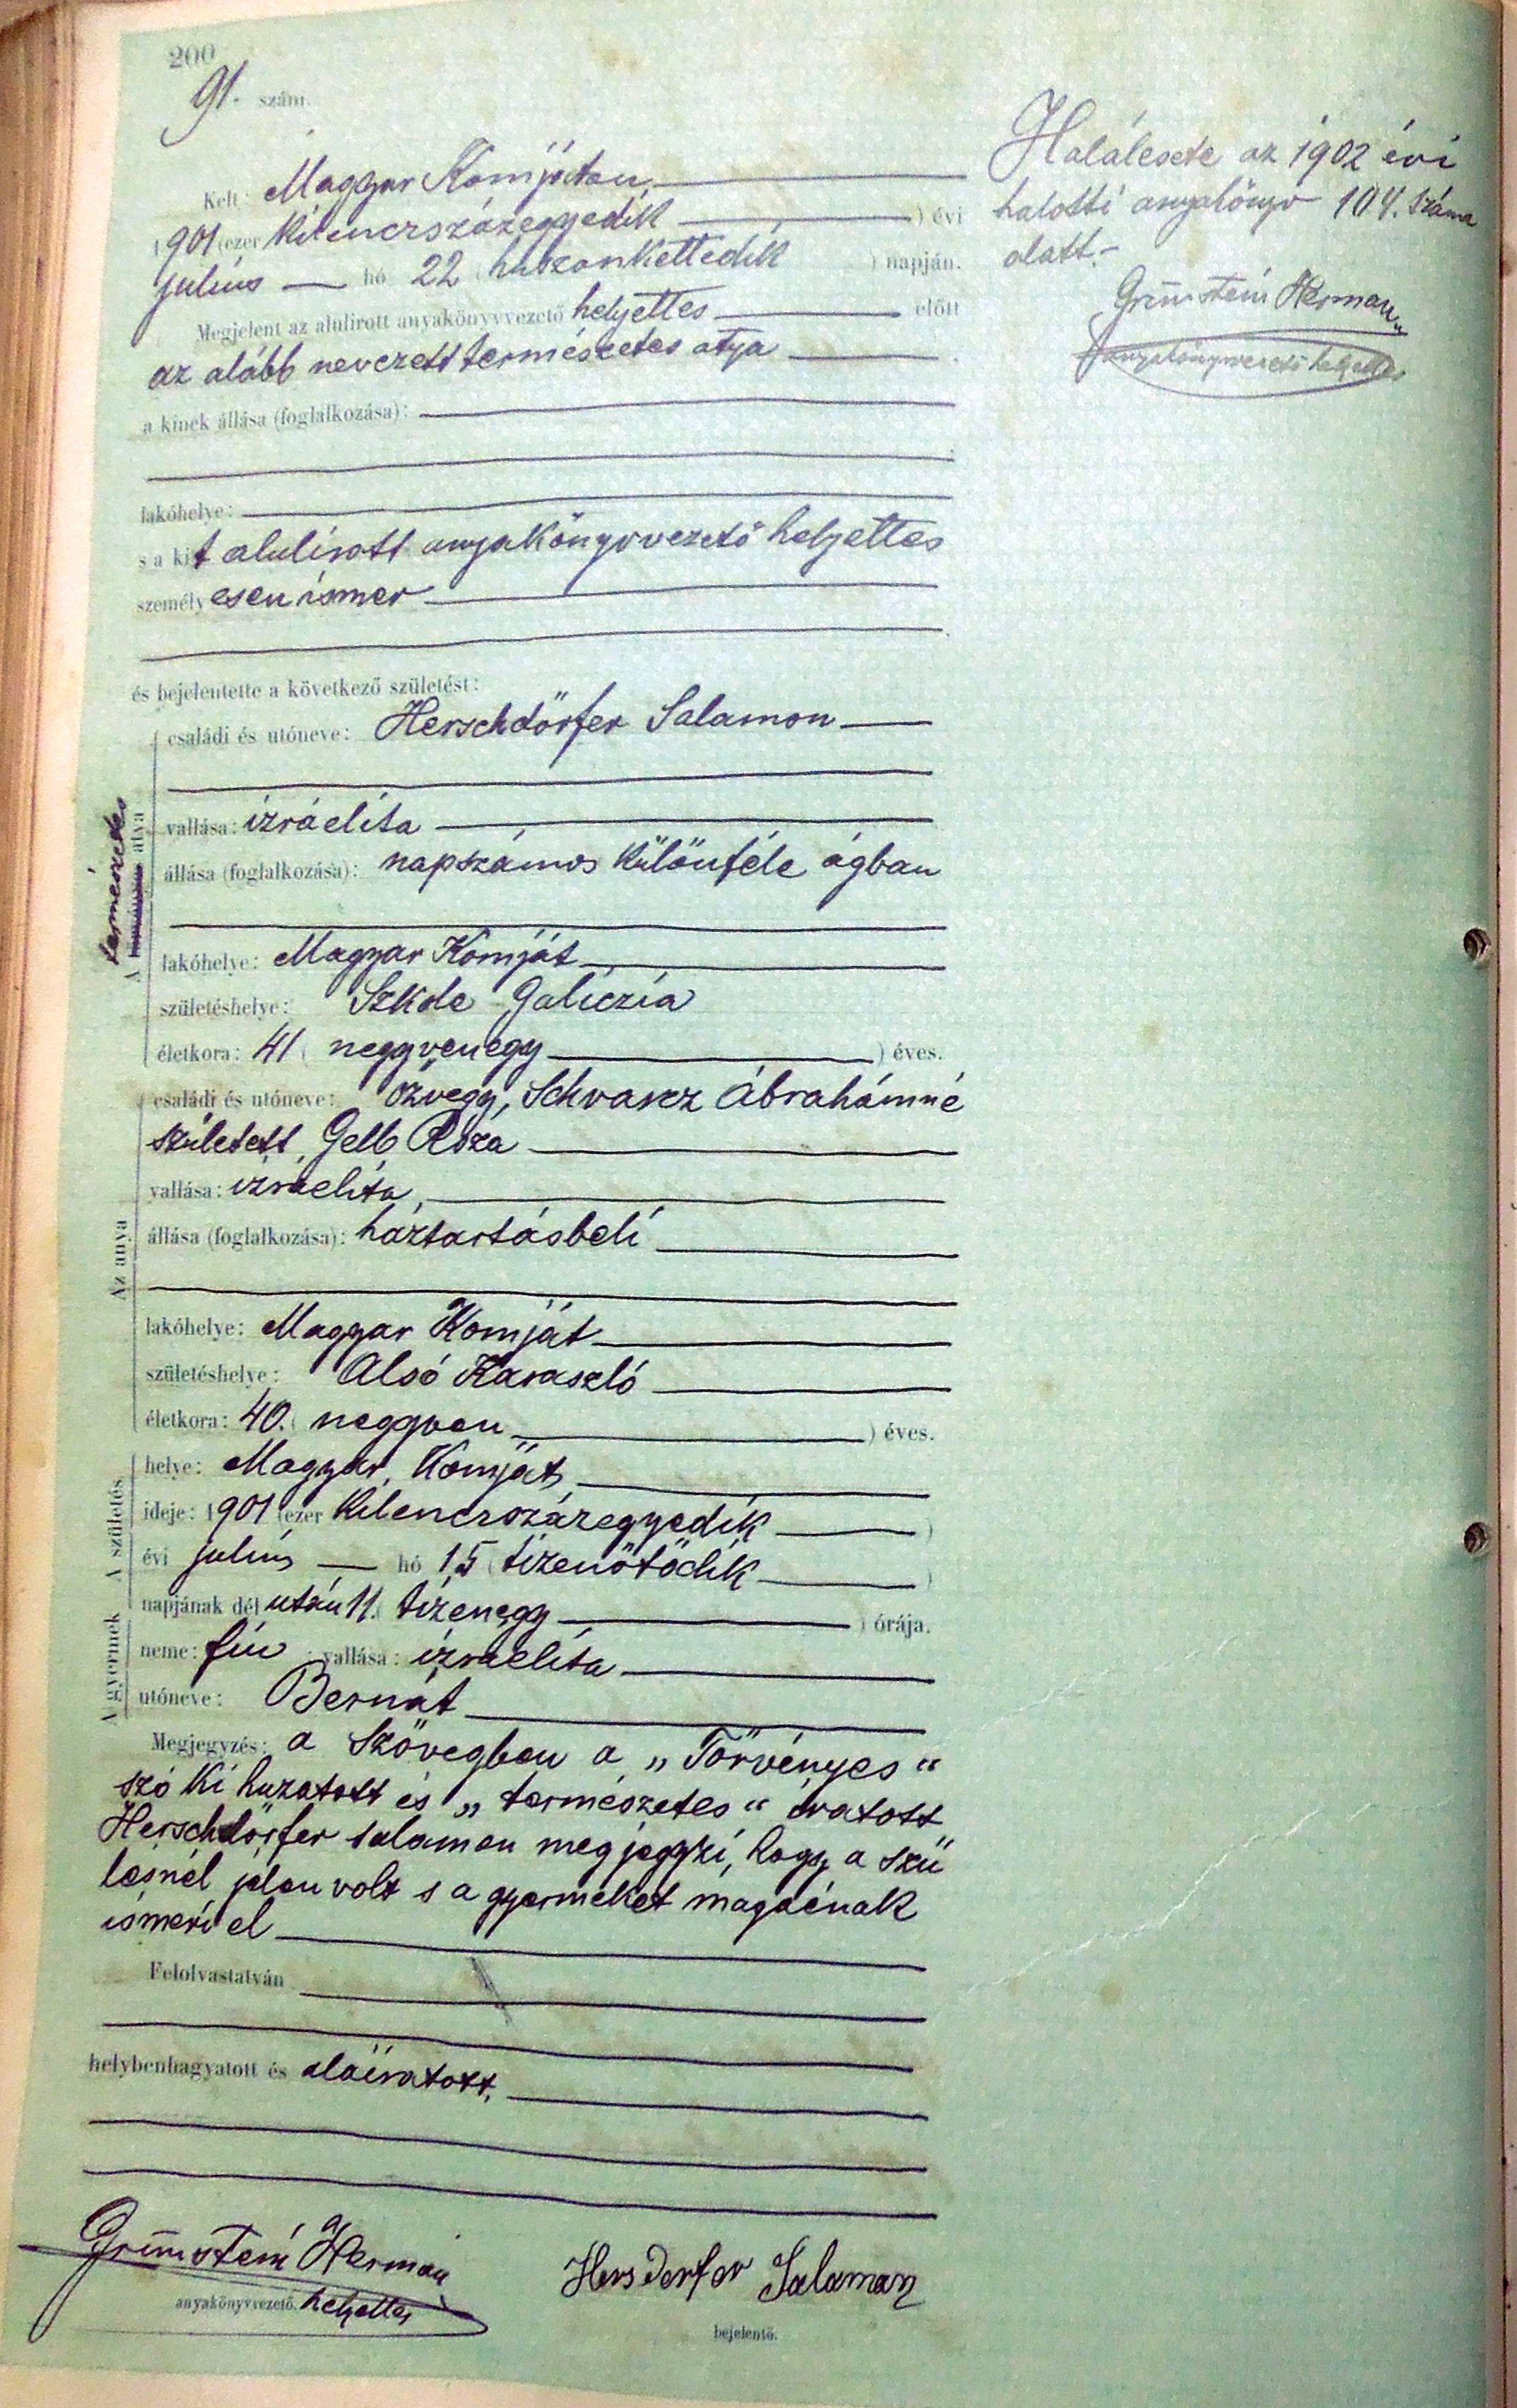 200
91. szám.
Kelt: Magyar Komjáton,
1901 (ezer kilencrszázegyedik ) évi
julius hó 22 (huszonkettedik ) napján.
Megjelent az alulirott anyakönyvvezető helyettes előtt
az alább nevezett természetes atya
a kinek állása (foglalkozása):
lakóhelye:
s a kit alulirott anyakönyvvezető helyettes
személyesen ismer
és bejelentette a következő születést:
A törvényes atya
természetes
családi és utóneve: Herschdörfer Salamon
vallása: izráelita
állása (foglalkozása): napszámos különféle ágban
lakóhelye: Magyar Komját
születéshelye: Szkole Galiczia
életkora: 41 (negyvenegy ) éves.
Az anya
családi és utóneve: özvegy, Schvarcz Ábrahámné
született, Gelb Róza
vallása: izráelita
állása (foglalkozása): háztartásbeli
lakóhelye: Magyar Komját
születéshelye: Alsó Karaszló
életkora: 40. (negyven ) éves.
A születés
helye: Magyar Komját
ideje: 1901 (ezer kilencrszázegyedik )
évi julius hó 15 (tizenötödik )
napjának dél után 11. (tizenegy ) órája.
A gyermek
neme: fiu vallása: izraelita
utóneve: Bernát
Megjegyzés: a szövegben a „Törvényes“
szó ki huzatott és „természetes“ iratott
Herschdörfer Salamon megjegyzi, hogy a szü
lésnél jelen volt s a gyermeket magáénak
ismeri el
Felolvastatván
helybenhagyatott és aláiratott.
Grünstein Herman
anyakönyvvezető. helyettes
Hersderfer Salaman
bejelentő.
Halálesete az 1902 évi
halotti anyakönyv 104. száma
alatt.-
Grünstein Herman
anyakönyvvezető helyettes